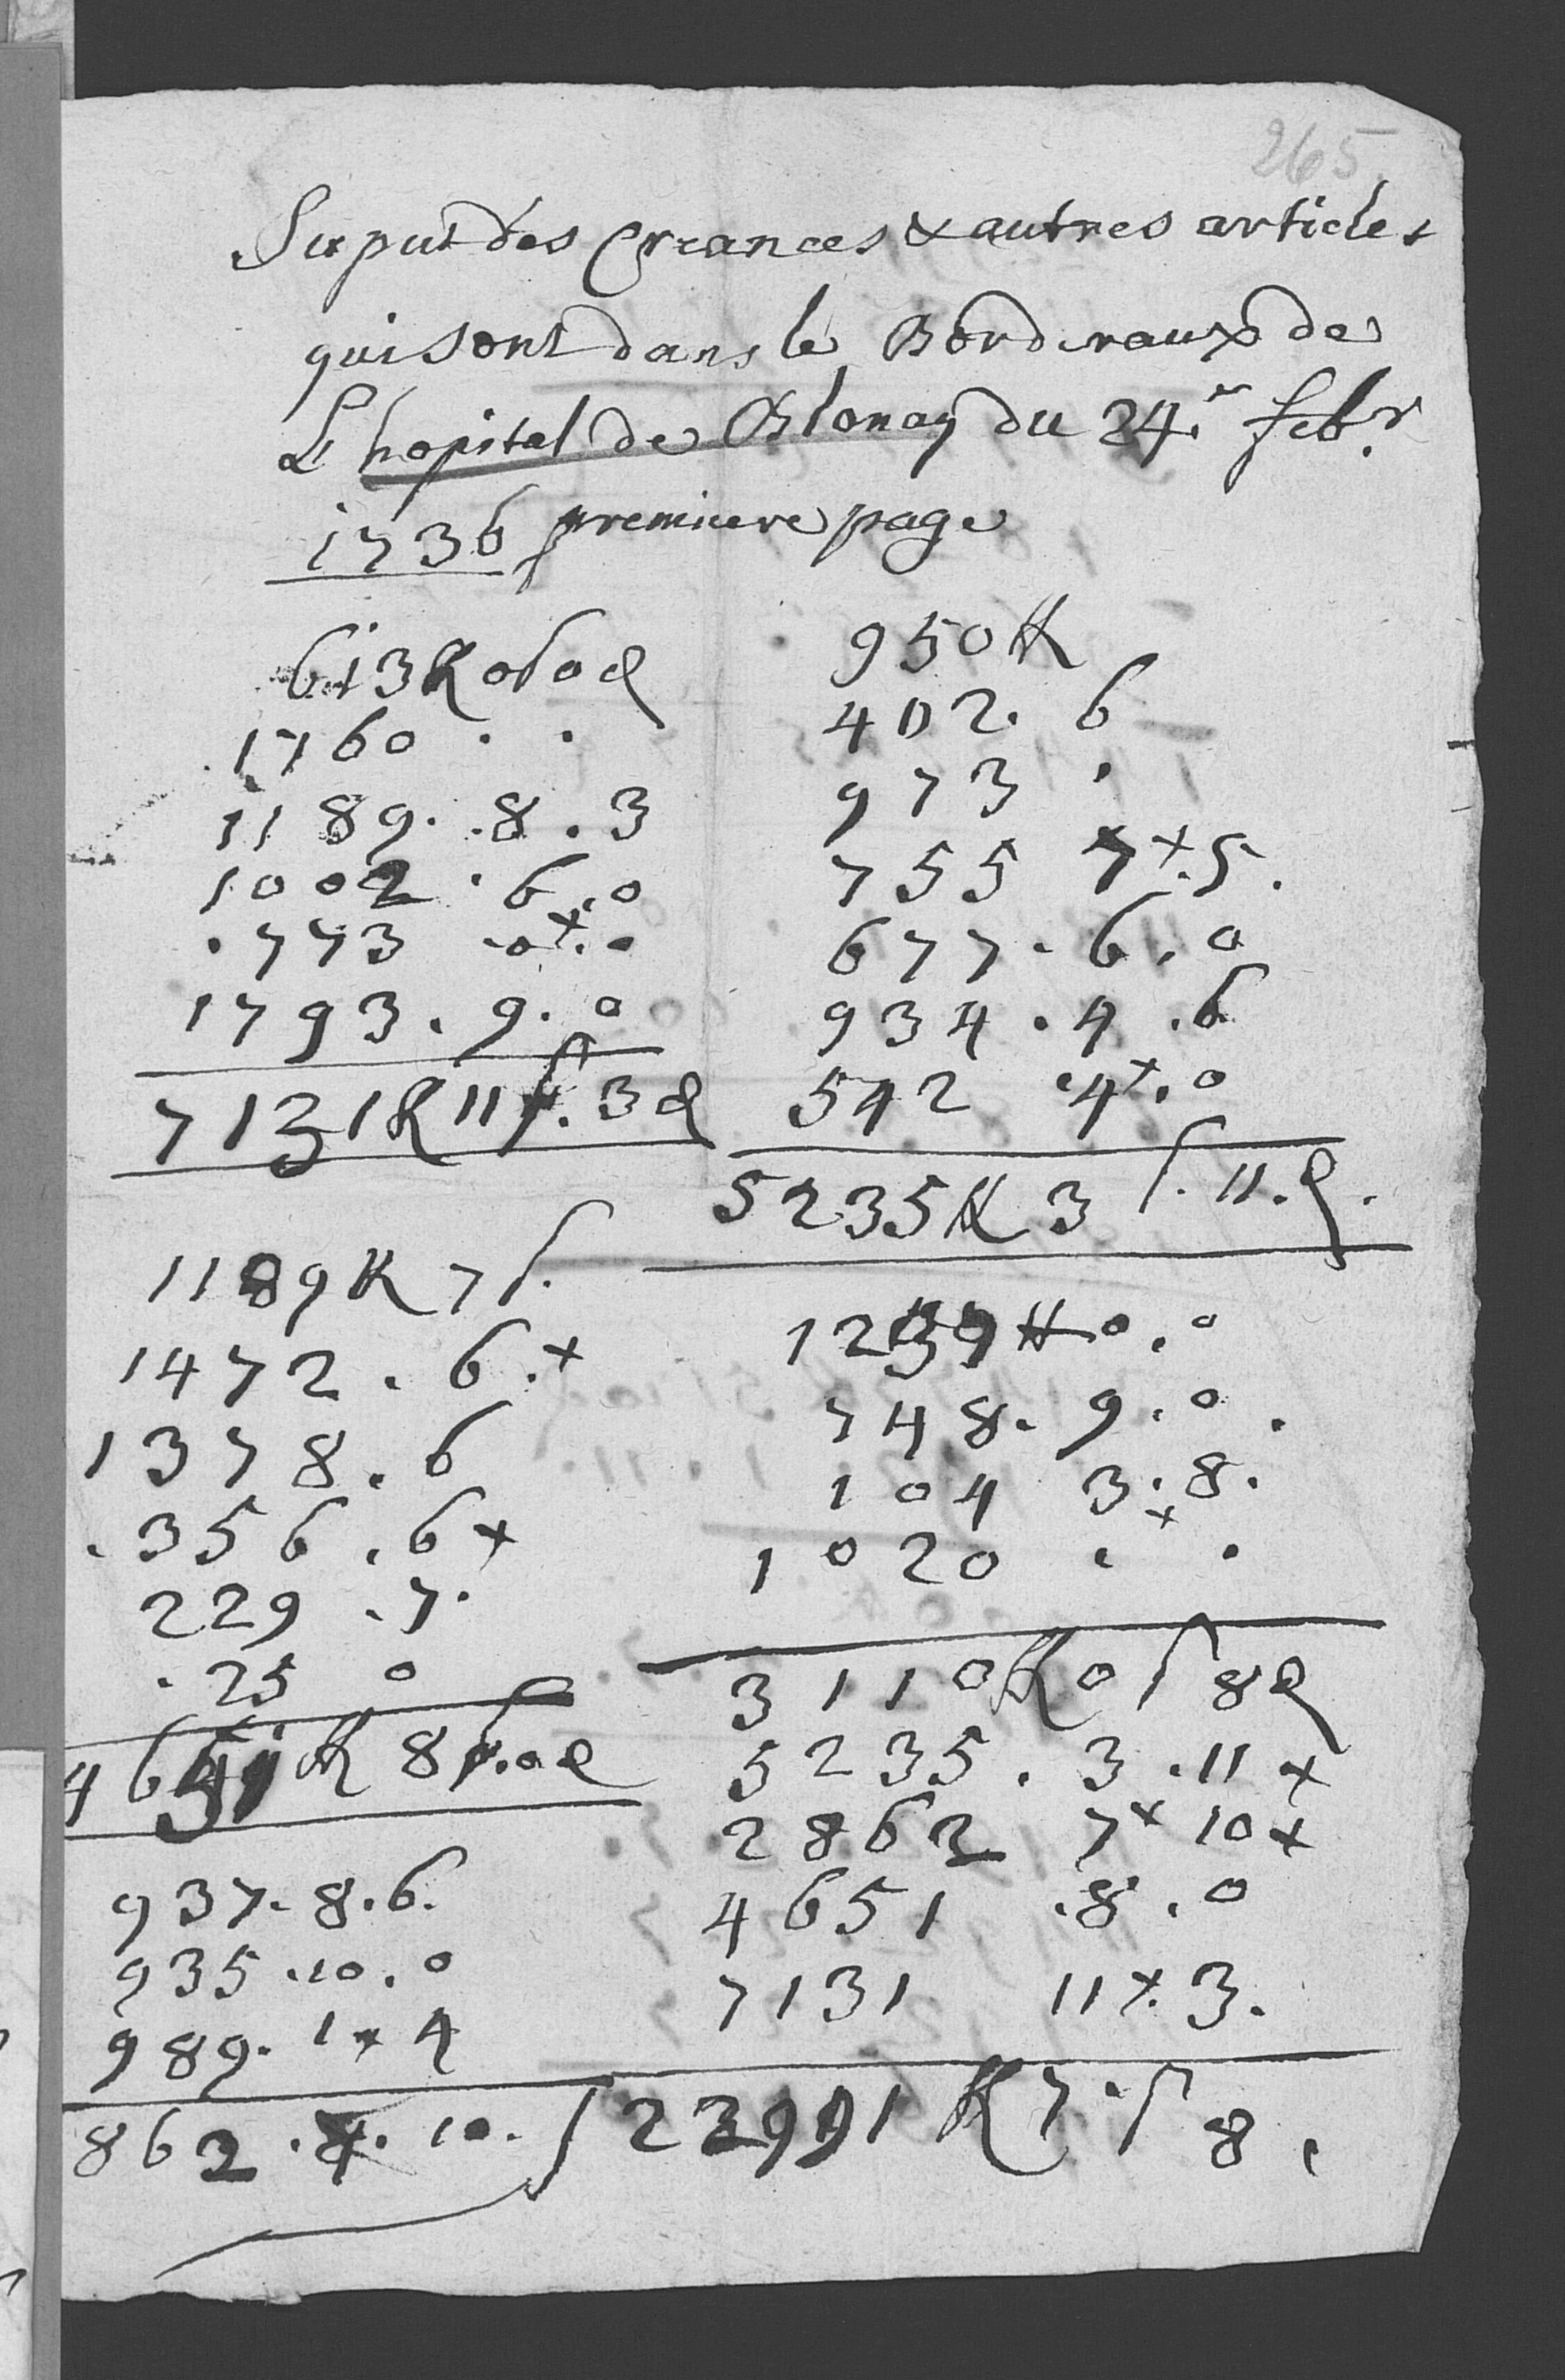 265
Suput des Creances & autres articles
qui sont dans le Borderaux de
L'hopital de Blonay du 24.e febr.
1736 premiere page
613 ff 0 s 0 d
1760 . .
1189 . 8 . 3
1002 . 6 . 0
. 773 . 0 +. 0
1793 . 9 . 0
7131 ff 11 s. 3 d
1189 ff 7 s.
1472 . 6 . +
1378 . 6
. 356 . 6 +
229 . 7 .
. 25 0
4651 ff 8 s. 0 d
937 . 8 . 6.
935 . 10 . 0
989 . 1 + 4
862 . 7 . 10 .
950 ff
402 . 6
973 .
755 7 +. 5 .
677 . 6 . 0
934 . 4 . 6
542 . 4 +. 0
5235 ff 3 s. 11 . d.
1237 ff 0 . 0
748 . 9 . 0 .
104 3 . 8 .
1020 . + .
3110 ff 0 s 8 d
5235 . 3 . 11 +
2862 7 + 10 +
4651 . 8 . 0
7131 11 +. 3 .
22991 ff 7 . s 8 .